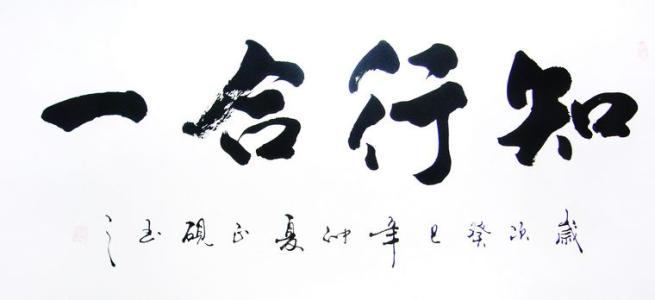 知行合一
歲次癸巳年仲夏正硯玉之